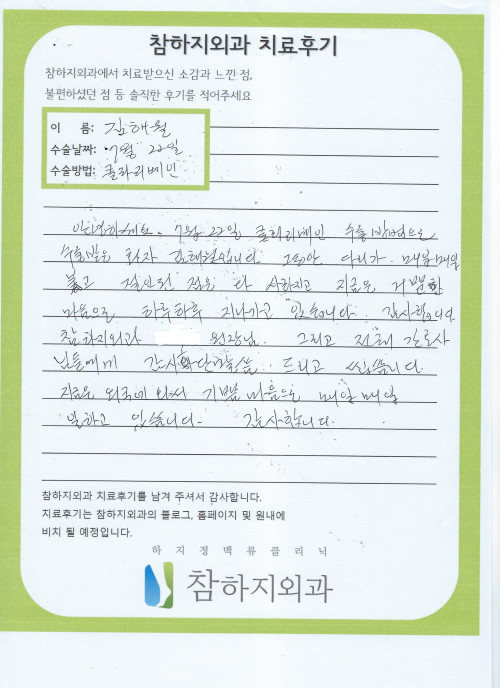 참하지외과 치료후기
참하지외과에서 치료받으신 소감과 느낀 점,
불편하셨던 점 등 솔직한 후기를 적어주세요
이 름: 김해월
수술날짜: 7월 22일
수술방법: 클라리베인
안녕하세요. 7월 22일 클라리베인 수술 방법으로
수술받은 환자 김해월입니다. 그동안 다리가 매일매일
붓고 절인던 점은 다 사라지고 지금은 가뿐한
마음으로 하루하루 지나가고 있습니다. 감사합니다
참하지외과 원장님. 그리고 전체 간호사
님들에게 감사하단 말씀 드리고 싶습니다.
지금은 외국에 와서 기쁜 마음으로 매일매일
일하고 있습니다. 감사합니다.
참하지외과 치료후기를 남겨 주셔서 감사합니다.
치료후기는 참하지외과의 블로그, 홈페이지 및 원내에
비치 될 예정입니다.
하지정맥류클리닉
참하지외과